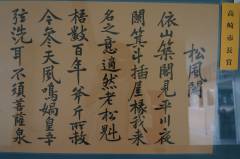 高崎市長賞
松風閣
依山築閣見平川夜
闌箕斗插屋椽我来
名之意適然老松魁
梧數百年斧斤所赦
今参天風鳴媧皇五十
弦洗耳不須菩薩泉